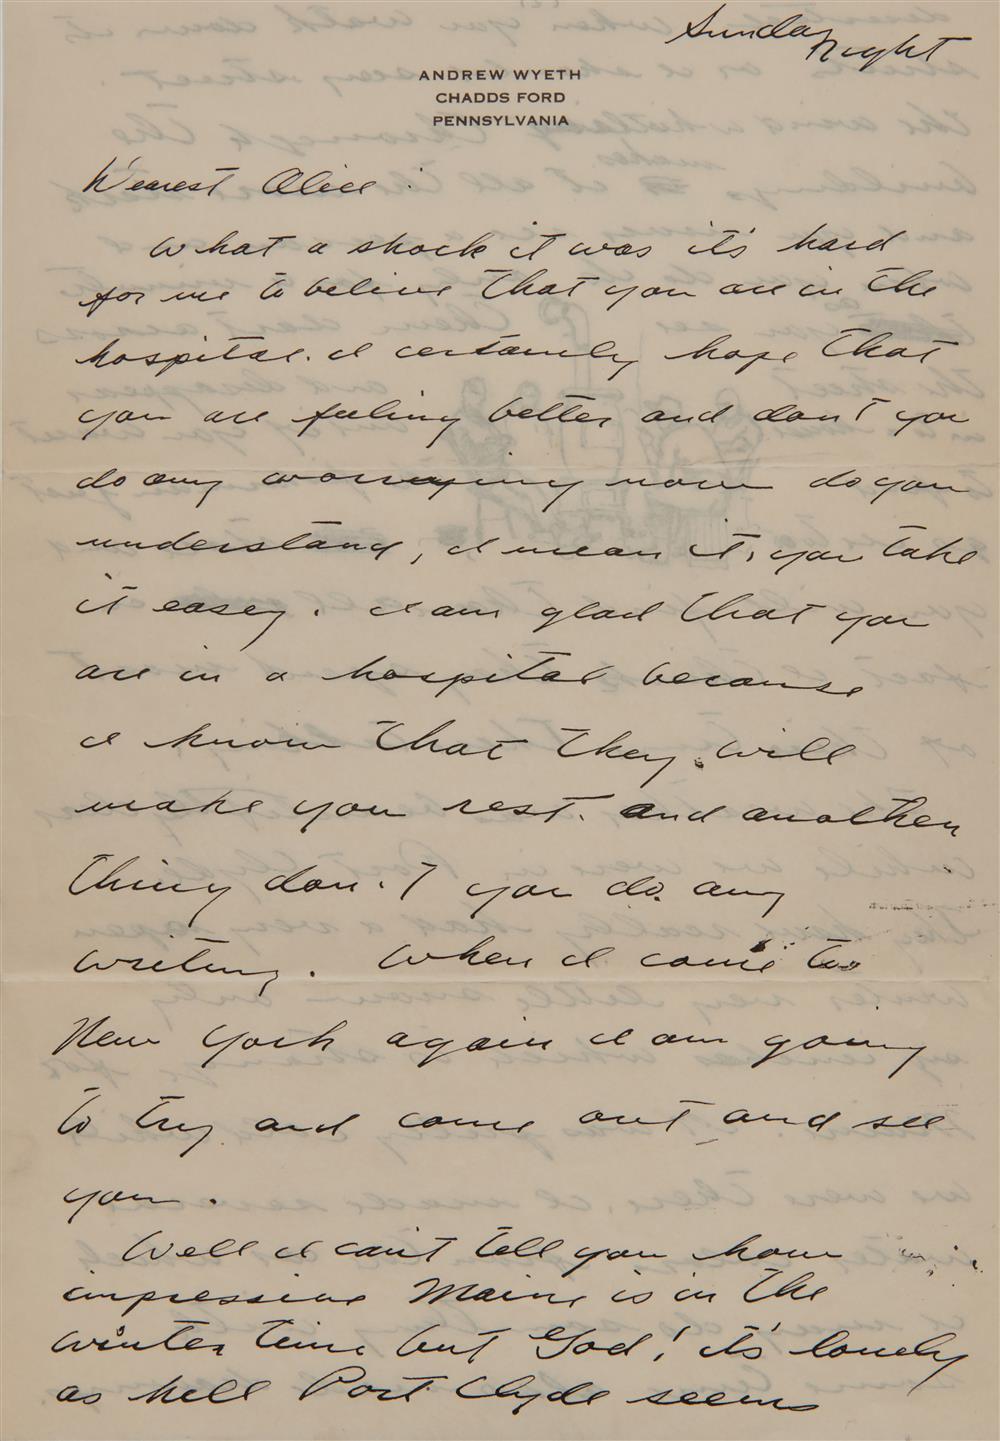 Sunday
Night
ANDREW WYETH
CHADDS FORD
PENNSYLVANIA
Dearest Alice:
What a shock it was it's hard
for me to belive that you are in the
hospital. I certainly hope that
you are feeling better and don't you
do any worrying now do you
understand, I mean it, you take
it easey. I am glad that you
are in a hospital because
I know that they will
make you rest. and another
thing don't you do any
writing. When I come to
New York again I am going
to try and come out and see
you.
Well I can't tell you how
impressive Maine is in the
winter time but God! it's lonely
as hell Port Clyde seems